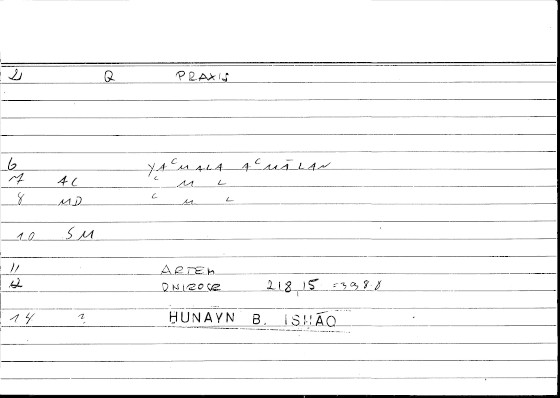 2 Q PRAXIS
6 YAᶜMALA AᶜMĀLAN
7 AC ᶜ M L
8 MD ᶜ M L
10 SM
11 ARTEM
12 218,15 =3980
14 ? HUNAYN B. ISHĀQ